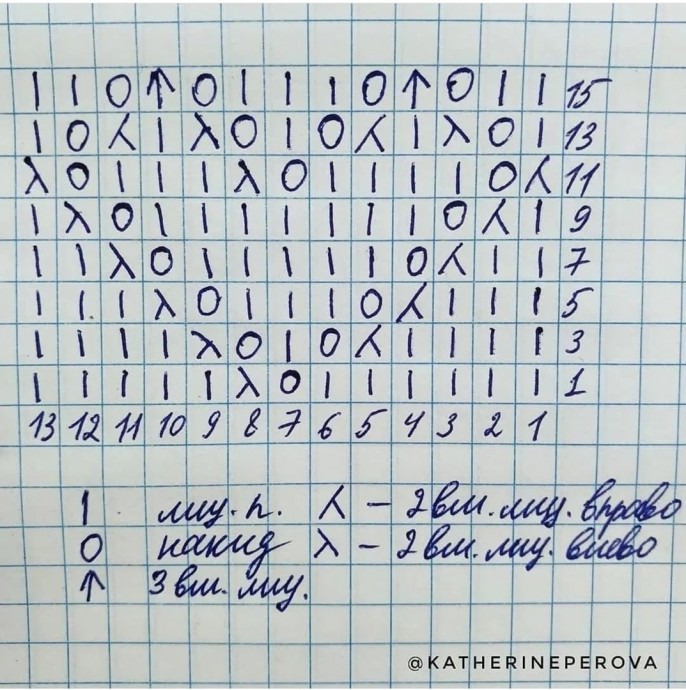 | | O ↑ O | | | O ↑ O | | 15
| O ⋌ | λ O | O ⋌ | λ O | 13
λ O | | | λ O | | | | O ⋌ 11
| λ O | | | | | | | O ⋌ | 9
| | λ O | | | | | O ⋌ | | 7
| | | λ O | | | O ⋌ | | | 5
| | | | λ O | O ⋌ | | | | 3
| | | | | λ O | | | | | | 1
13 12 11 10 9 8 7 6 5 4 3 2 1
| лиц. п. ⋌ – 2 вм. лиц. вправо
O накид λ – 2 вм. лиц. влево
↑ 3 вм. лиц.
@KATHERINEPEROVA